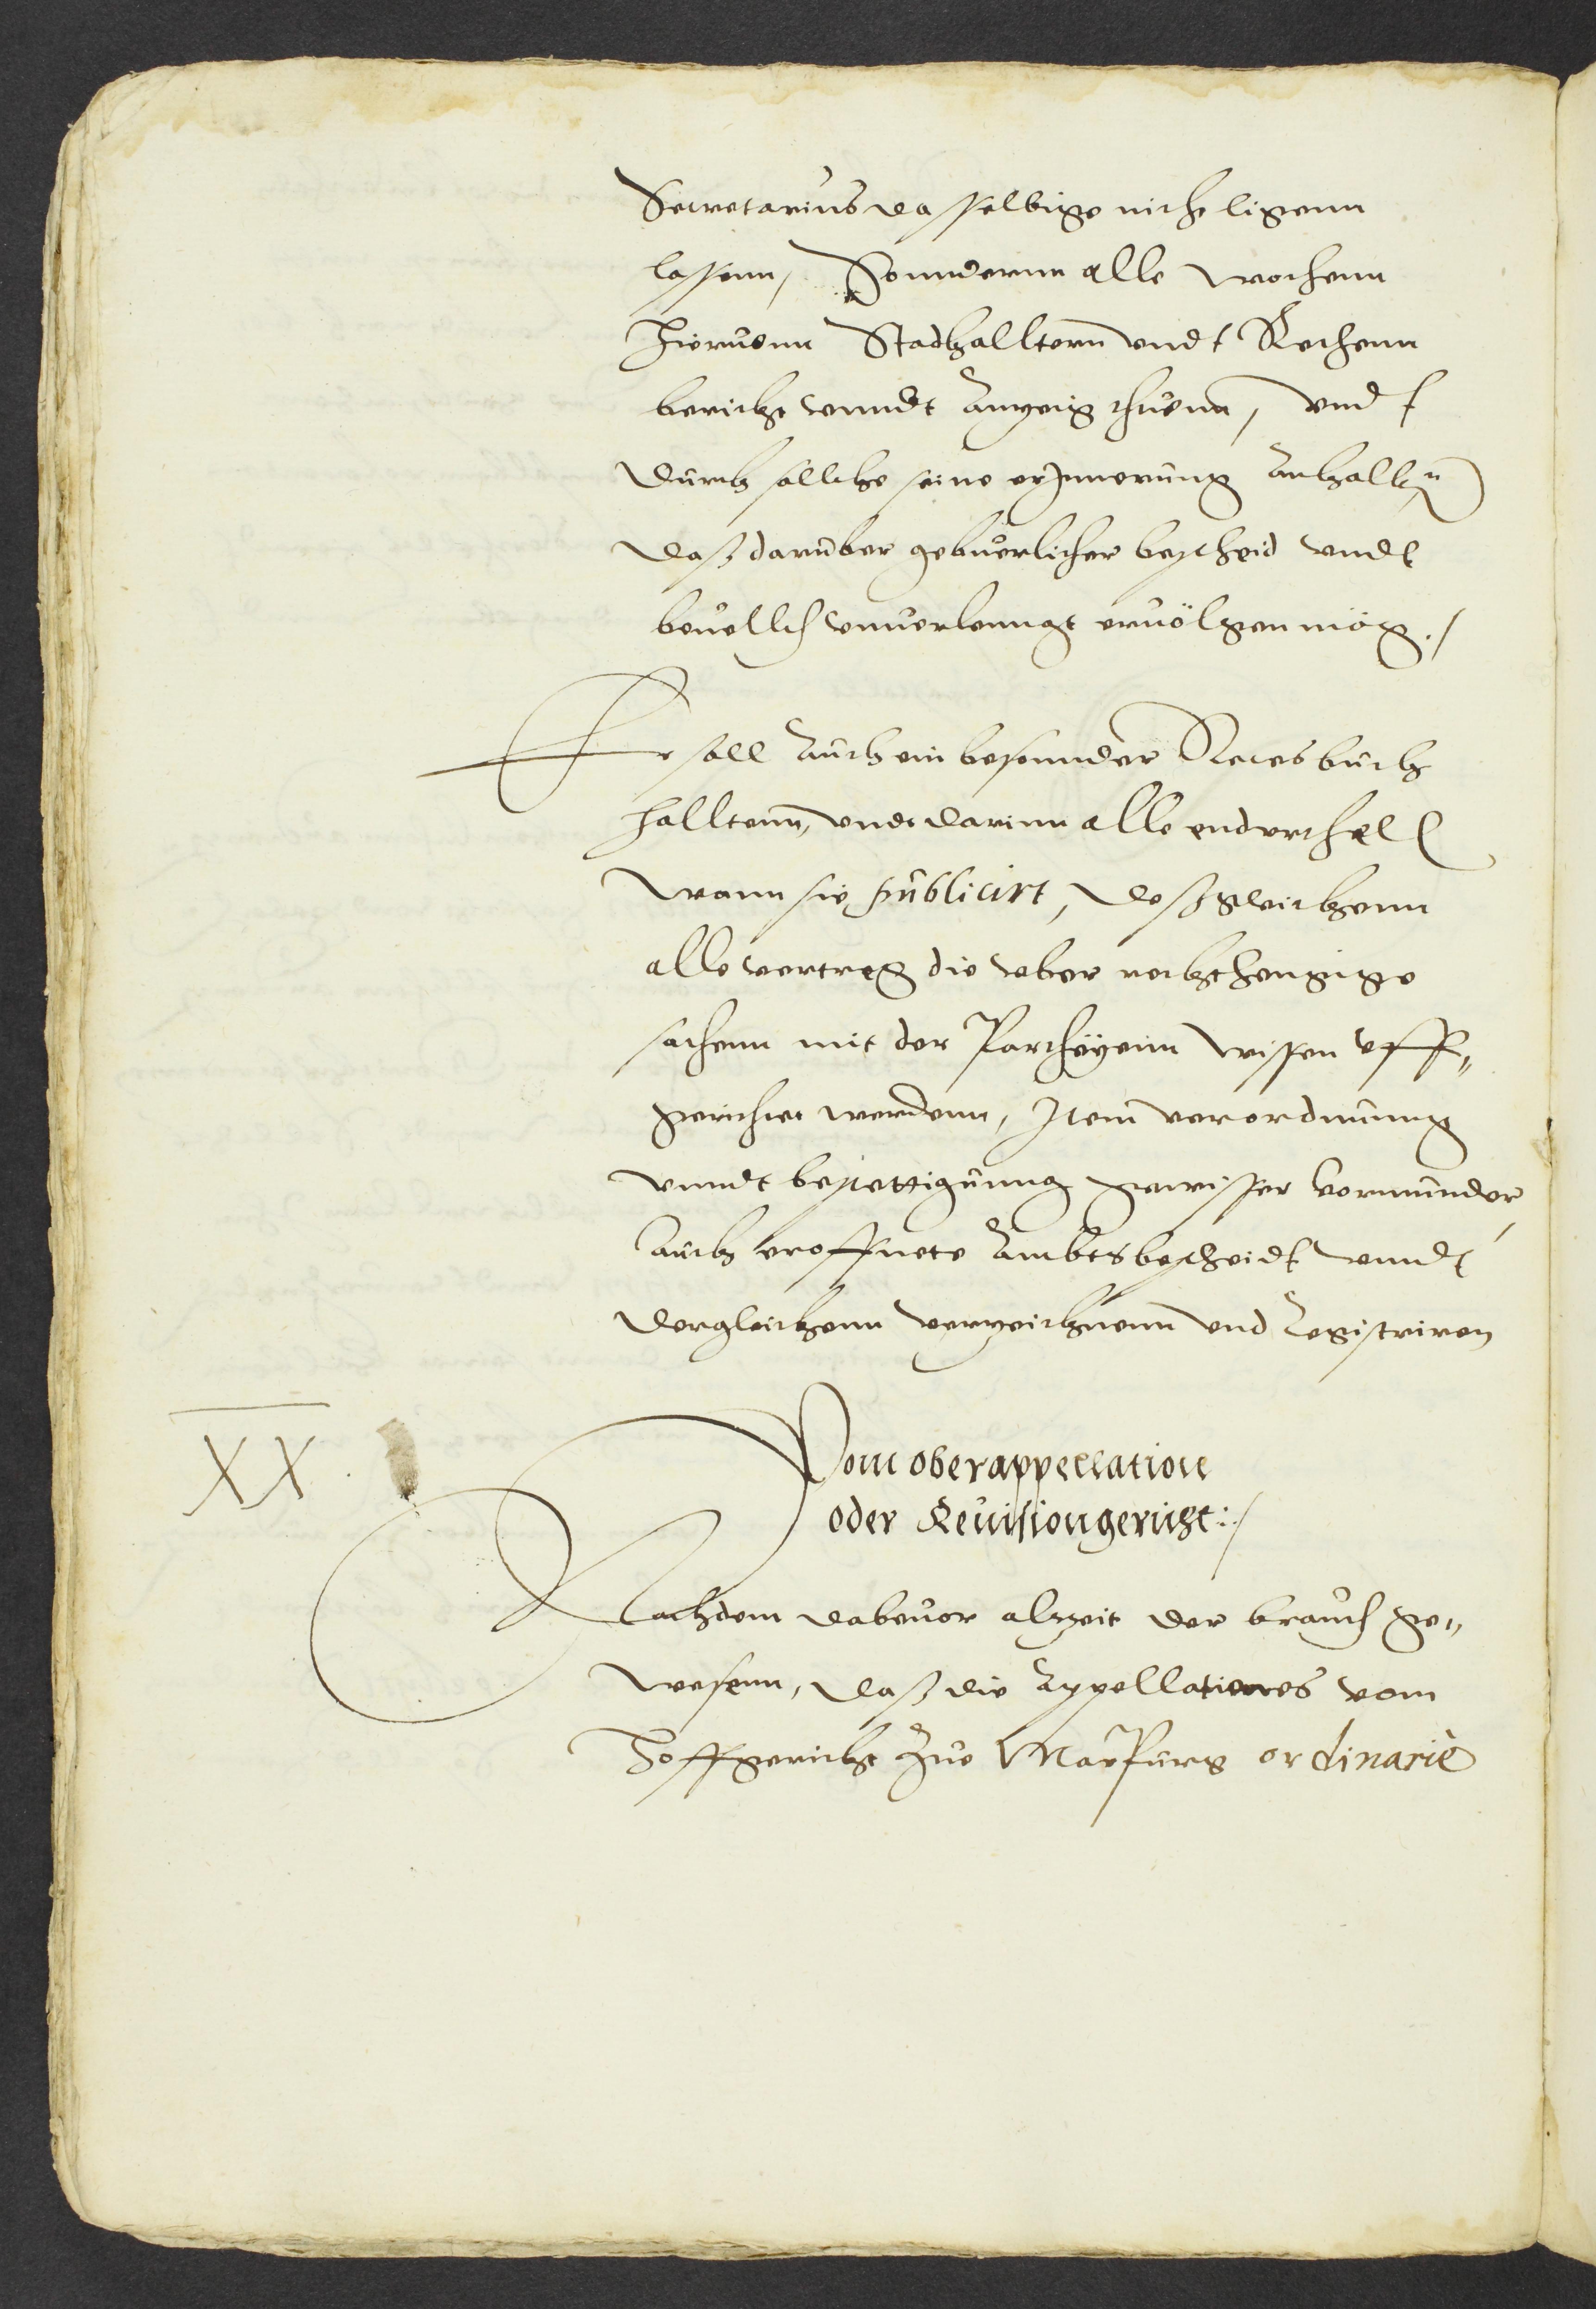 Secretarius dasselbige nicht ligenn
lassenn, Sonnderm alle wochenn
hieruonn Stadthalltern vndt Rethenn
bericht vnndt Anzeig thuenn, vndt
durch sollche seine erJnnerung Anhallten
daß darüber gebuerlicher bescheid vndt
beuelch vnuerlenngt eruölgen mög./
Er soll Auch ein besonnder Reces buch
halltenn, vndt darinn alle endvrthell
wann sie publicirt, deßgleichenn
alle vertreg die vber rechthengige
sachenn mit der Partheyenn wissen vff„
gericht werdenn, Jtem verordnung
vnndt bestettigunng gewisser Vormunder,
Auch eroffnete Ambtsbescheidt vnndt
dergleichenn verzeichnenn vnd Registriren
XX.
Vom oberappellation
oder Reuision gericht:/
Nachdem dabeuor alzeit der brauch ge„
wesenn, daß die Appellationes vom
Hoffgericht Zue Marpurg ordinariè